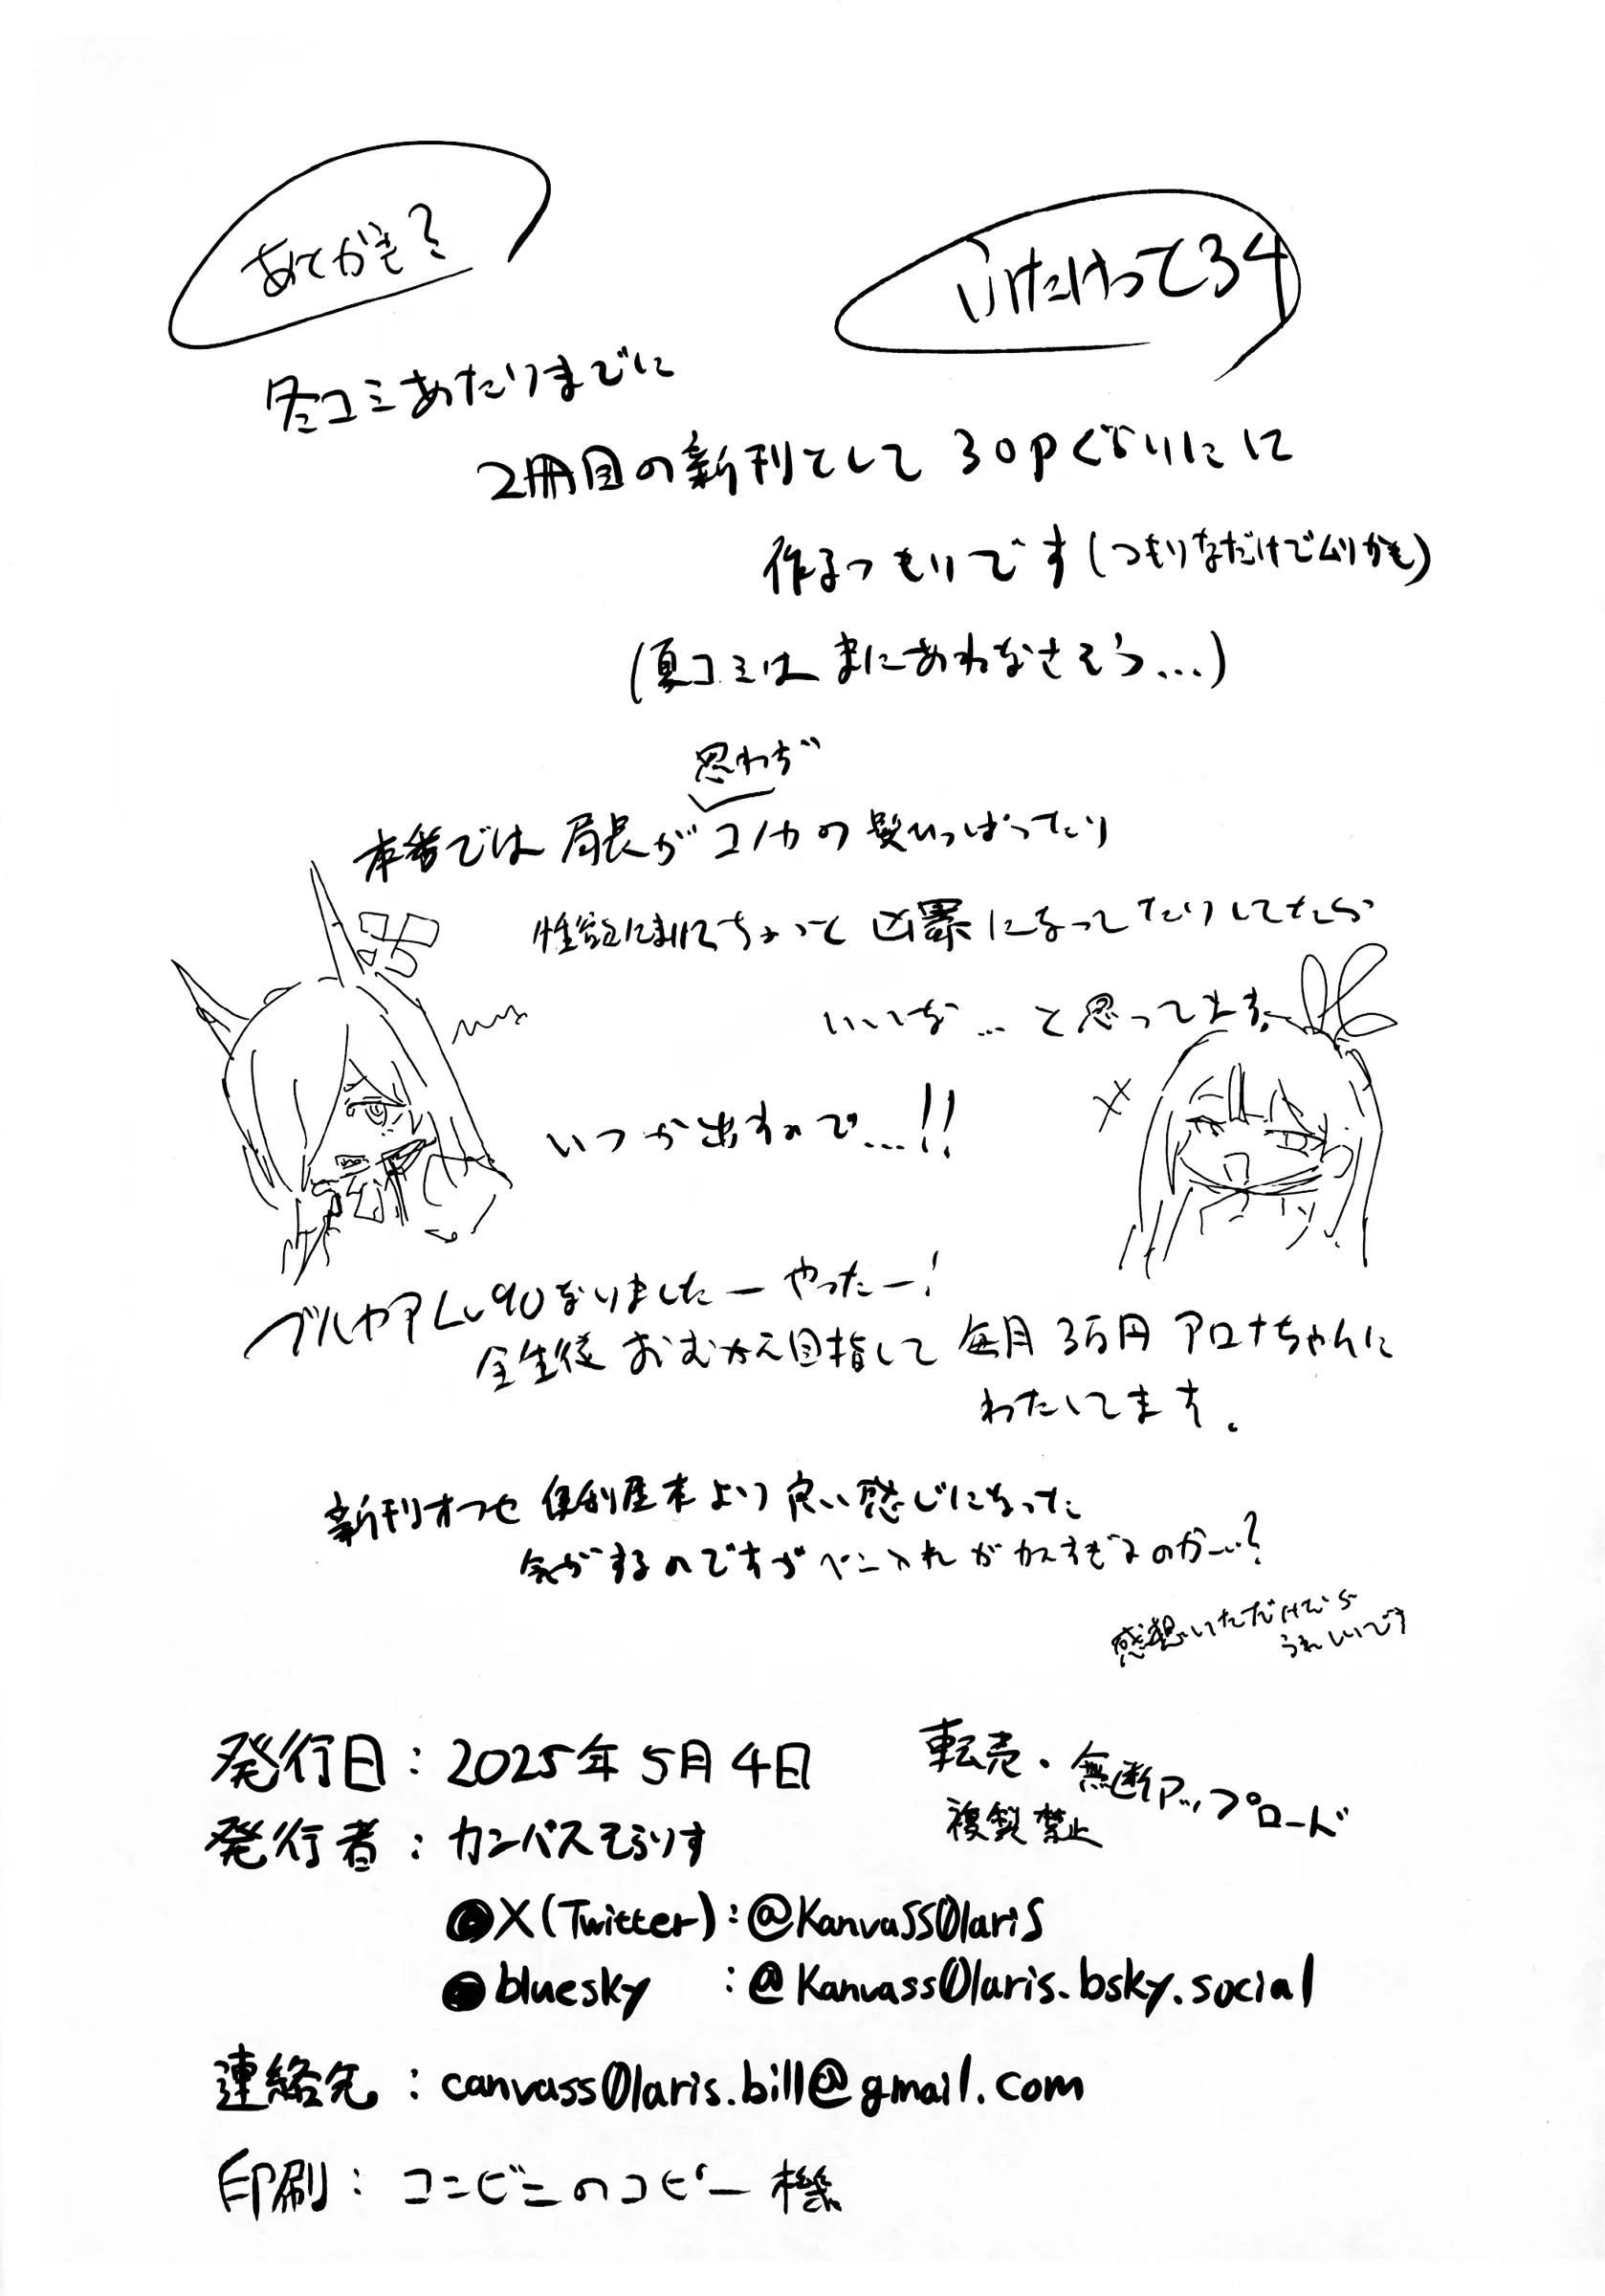 あとがき?
冬コミあたりまでに
2冊目の新刊として30Pぐらいにに
作るつもりです(つもりなだけでムリかも)
(夏コミはまにあわなさそう...)
思わず
本番では局長がコノカの髪ひっぱったり
性欲にまけてちょっと凶暴になってたりしてたら
いいな...と思ってます。
いつか出すので...!!
ブルアカLv90なりましたーやったー!
全生徒おむかえ目指して毎月3万円アロナちゃんに
わたしてます。
新刊オフセ便利屋本より良い感じになった
気がするのですがペン入れがカスすぎるのか…?
感想いただけたら
うれしいです
発行日:2025年5月4日
転売・無断アップロード
複製禁止
発行者:カンバスそらりす
●X(Twitter):@KanvaSS0lariS
●bluesky :@Kanvass0laris.bsky.social
連絡先:canvass0laris.bill@gmail.com
印刷:コンビニのコピー機